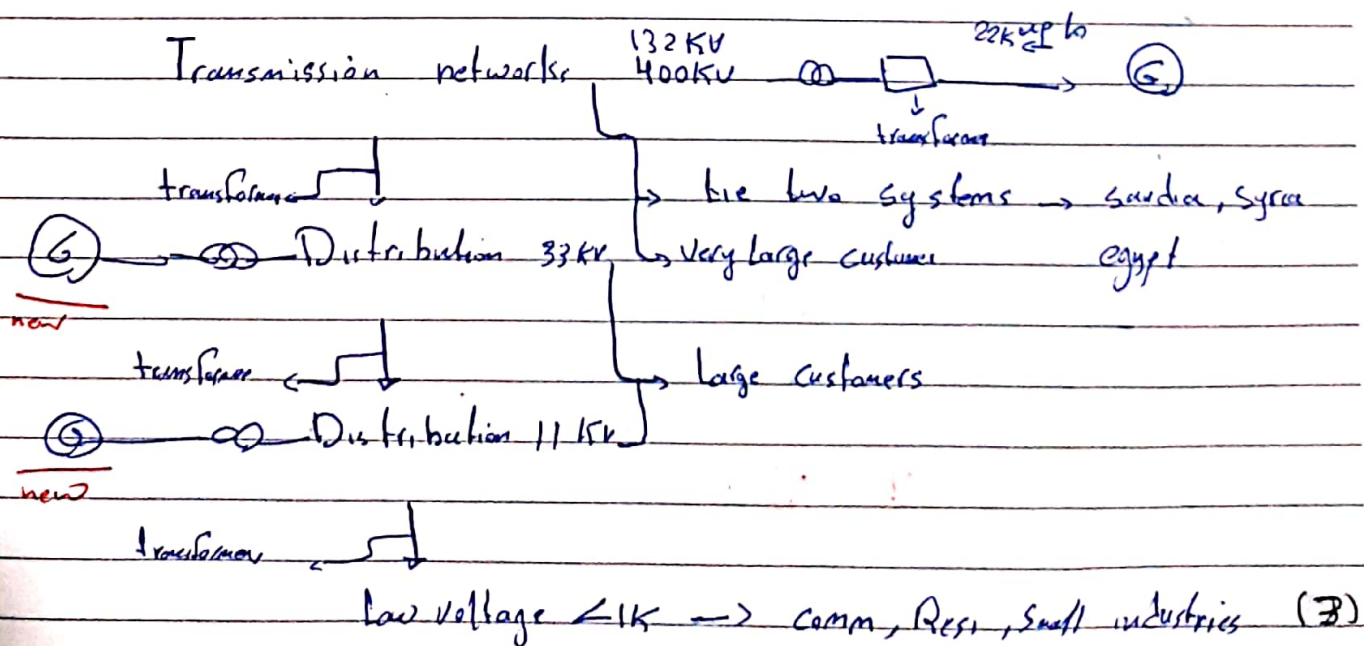 132 KV
22K up to
Transmission networks 400KV G
transformer
transformer tie two systems → saudia, Syria
G Distribution 33 KV very large customer egypt
new
transformer large customers
G Distribution 11 KV
new
transformer
Low voltage <1K → comm, Resi, Small industries (3)